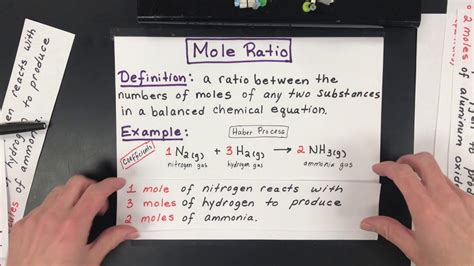 Mole Ratio
Definition: a ratio between the
numbers of moles of any two substances
in a balanced chemical equation.
Example:
Haber Process
Coefficients
1 N2(g) + 3 H2(g) → 2 NH3(g)
nitrogen gas hydrogen gas ammonia gas
1 mole of nitrogen reacts with
3 moles of hydrogen to produce
2 moles of ammonia.
reacts with
of hydrogen to produce
moles of ammonia.
2 moles
of aluminum oxide